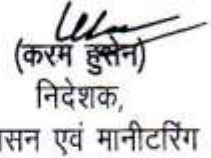 (करम हुसैन)
निदेशक,
सन एवं मानीटरिंग